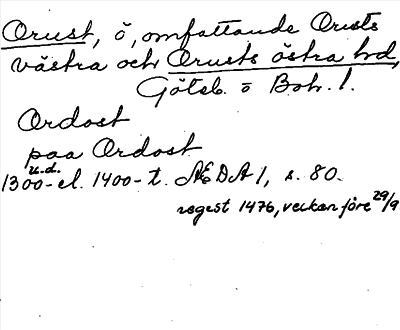 Orust, ö, omfattande Orusts
västra och Orusts östra hd,
Göteb. o Boh. l.
Ordost
paa Ordost
u.d.
1300- el. 1400-t. NEDA 1, s. 80.
regest 1476, veckan före 29/9